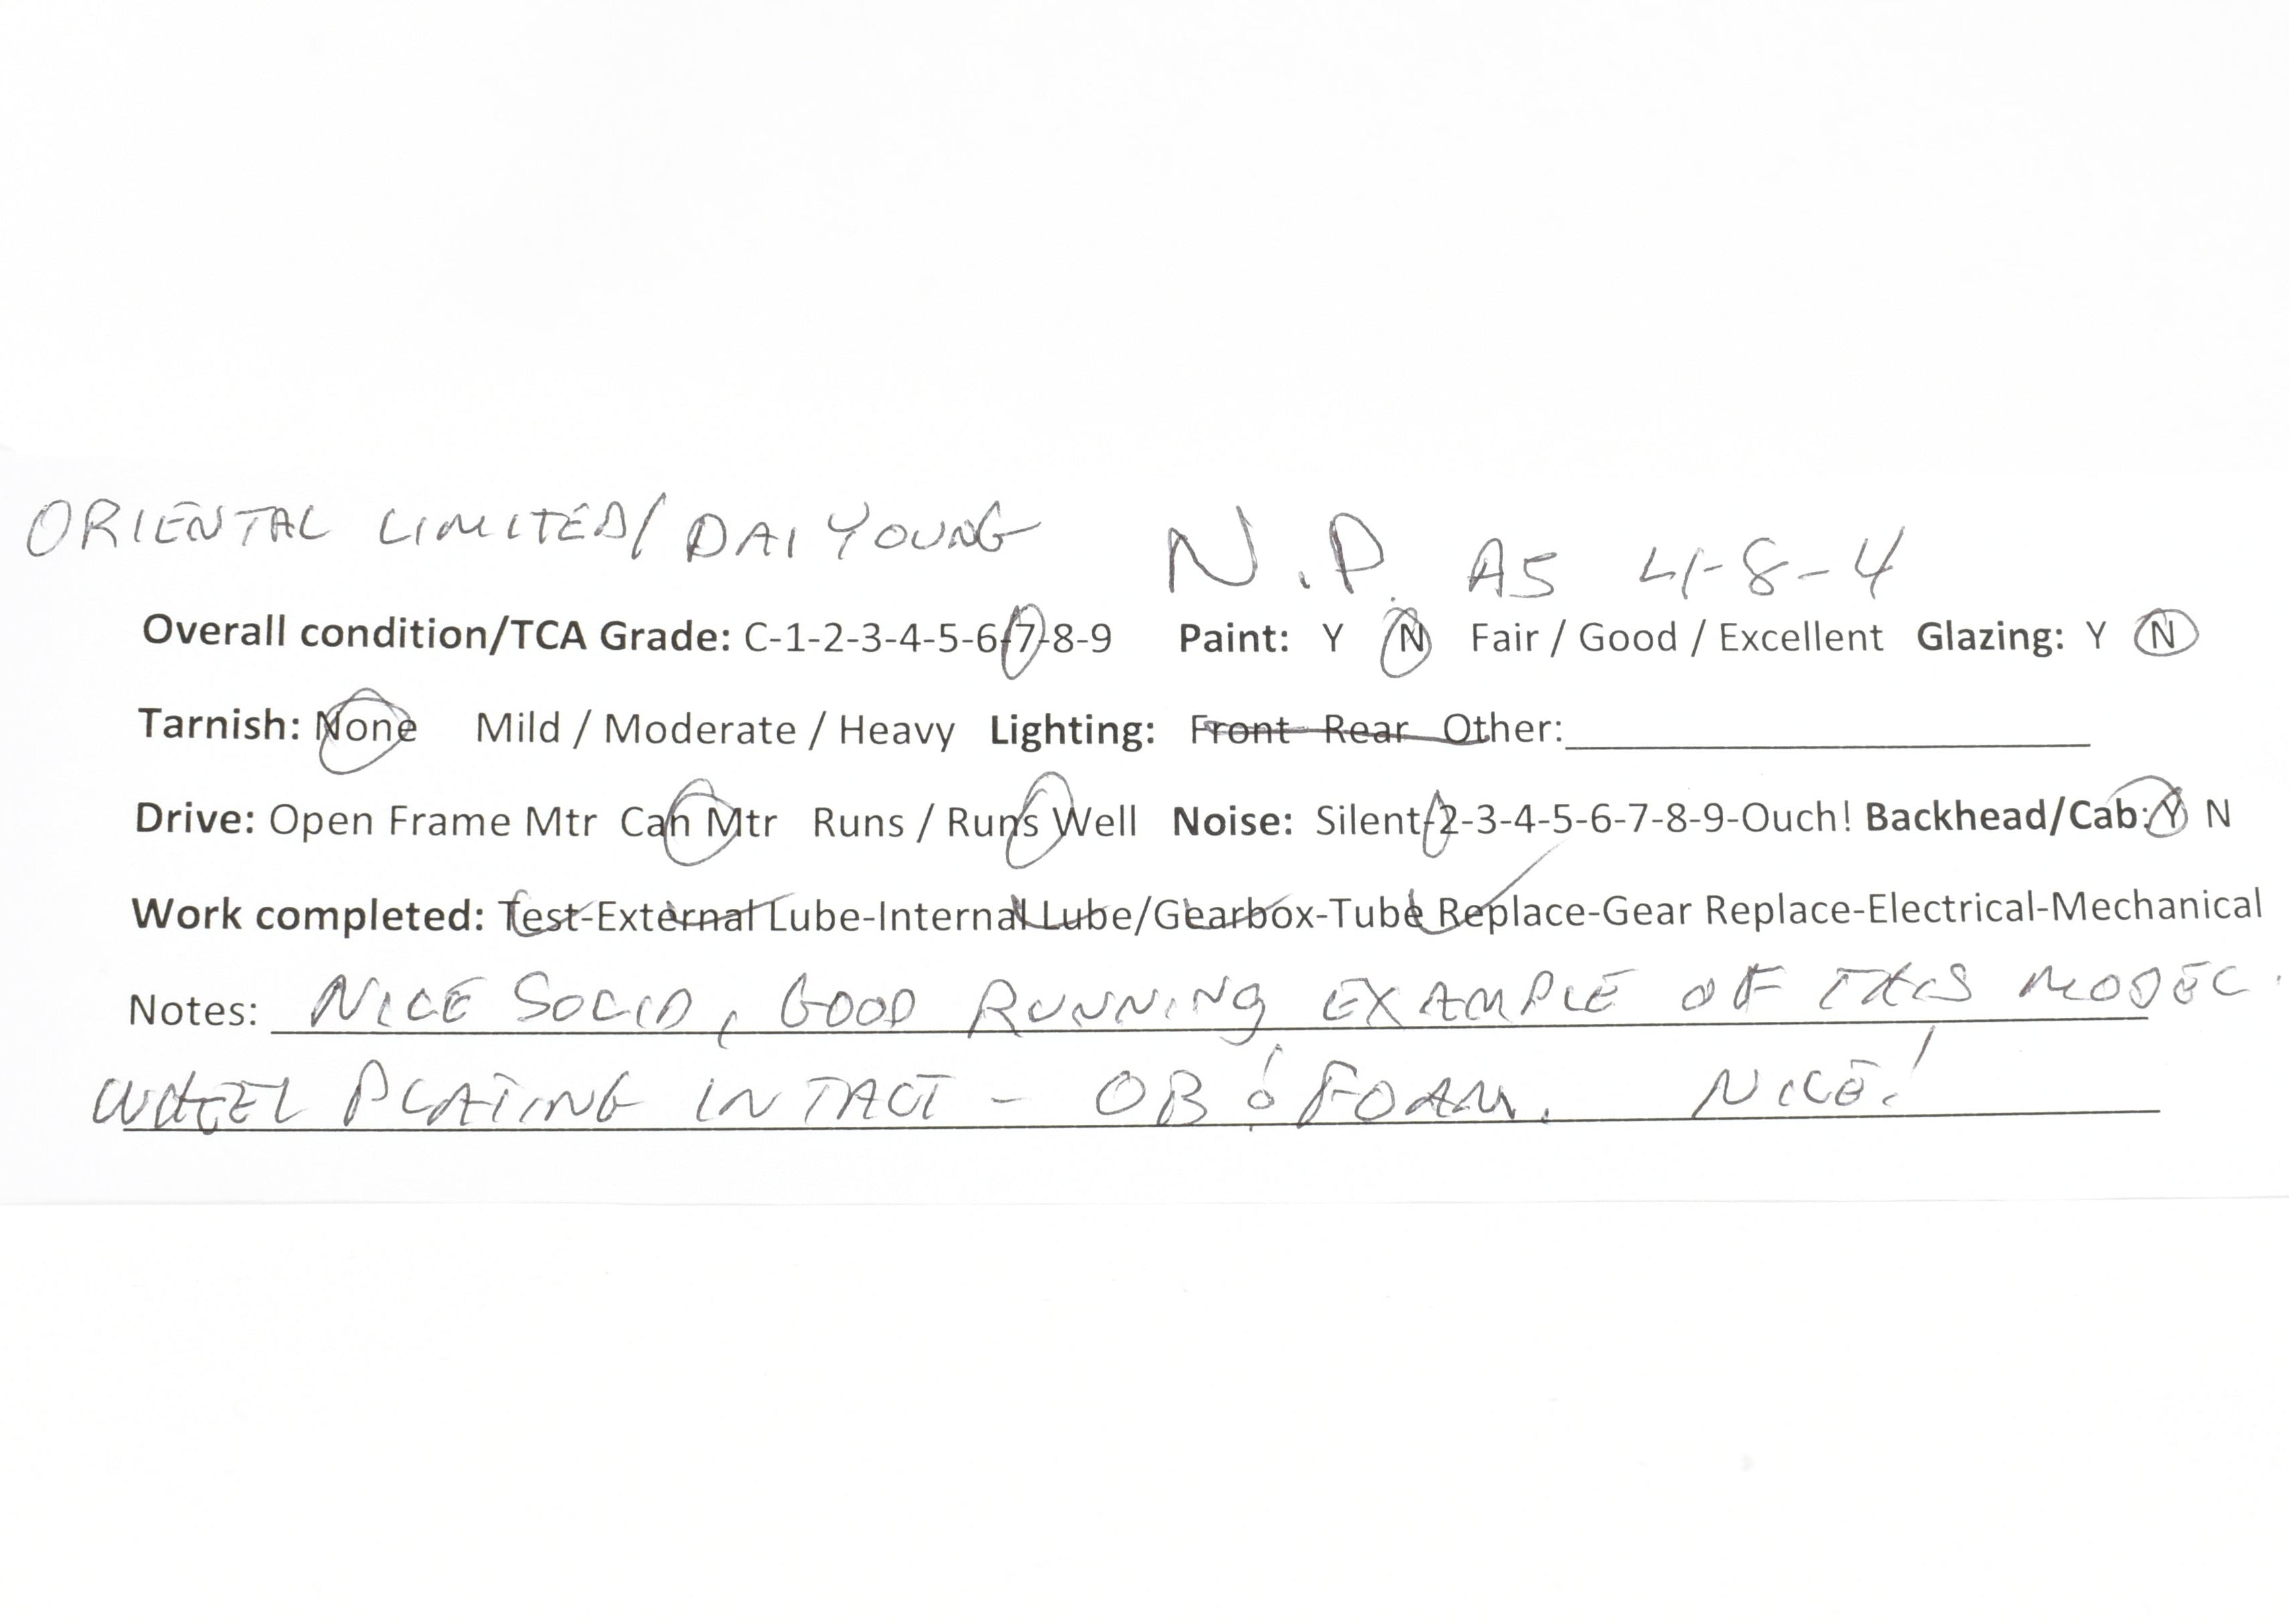 ORIENTAL LIMITED/ DAI YOUNG N.P. A5 4-8-4
Overall condition/TCA Grade: C-1-2-3-4-5-6-7-8-9 Paint: Y N Fair / Good / Excellent Glazing: Y N
Tarnish: None Mild / Moderate / Heavy Lighting: Front Rear Other:
Drive: Open Frame Mtr Can Mtr Runs / Runs Well Noise: Silent-2-3-4-5-6-7-8-9-Ouch! Backhead/Cab: Y N
Work completed: Test-External Lube-Internal Lube/Gearbox-Tube Replace-Gear Replace-Electrical-Mechanical
Notes: NICE SOLID, GOOD RUNNING EXAMPLE OF THIS MODEL.
WHEEL PLATING INTACT - OB & FOAM. NICE!